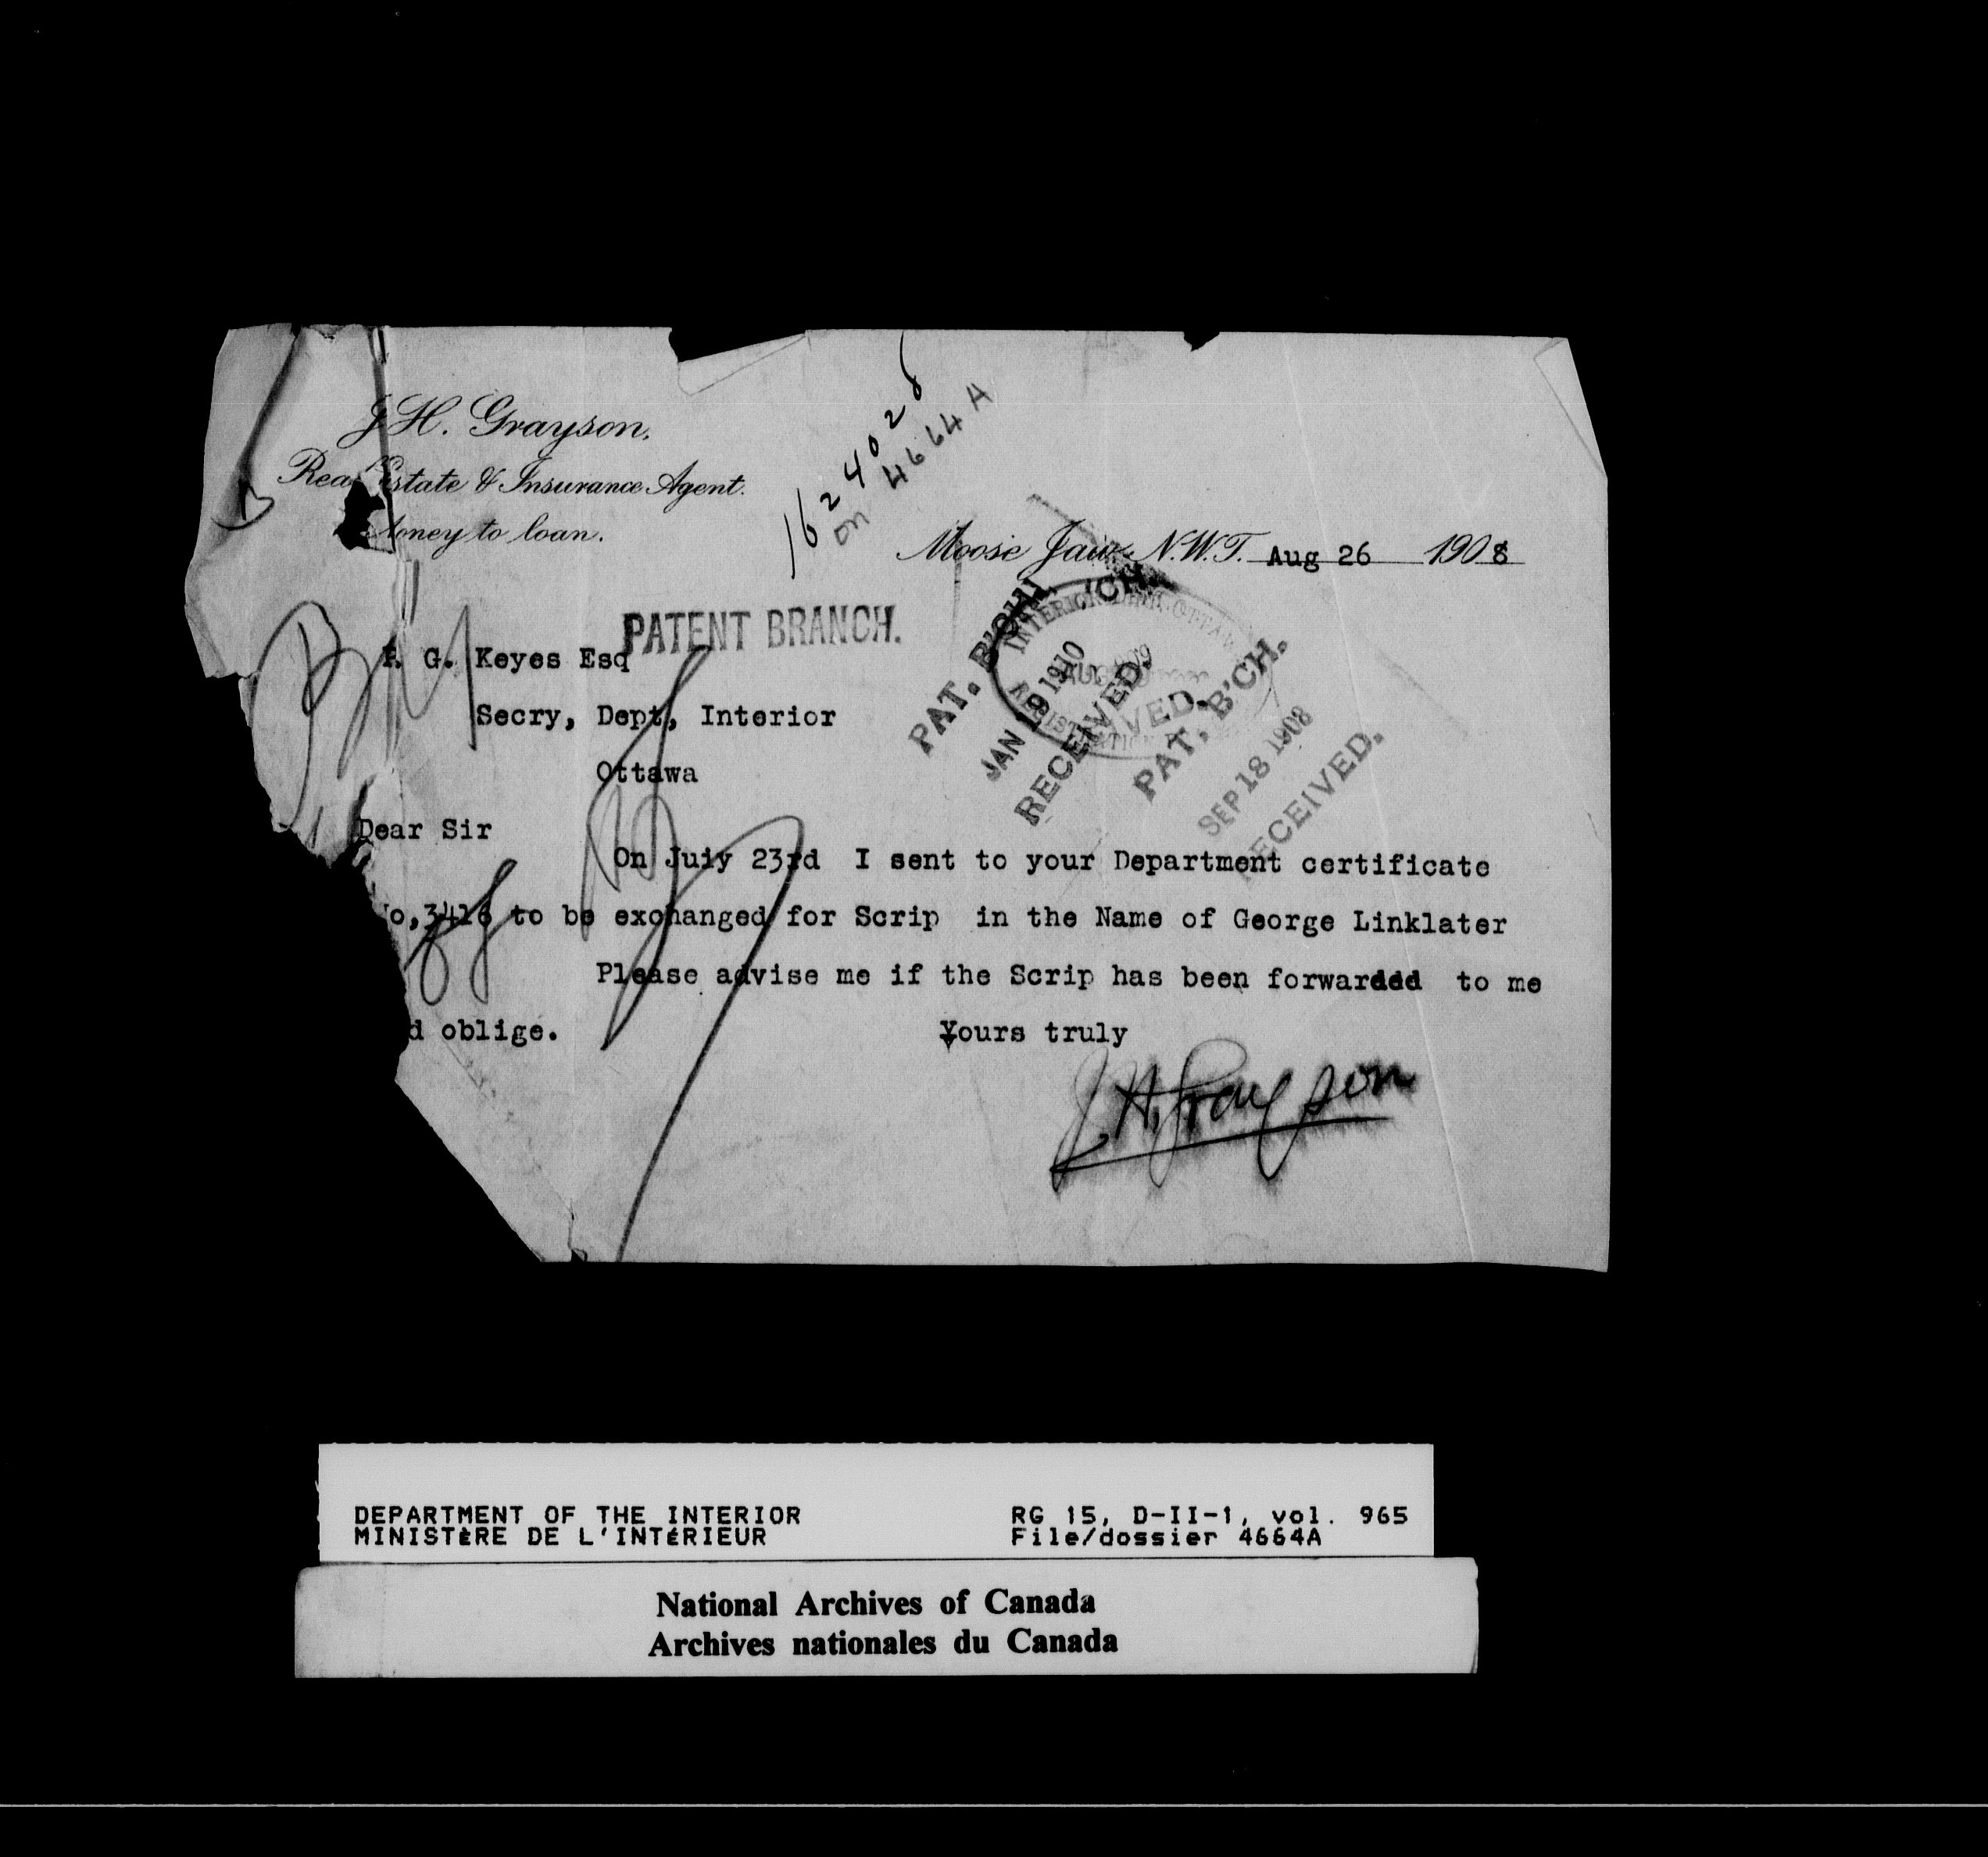 J.H. Grayson.
Real Estate & Insurance Agent.
Money to loan.
1624028
on 4664A
Moose Jaw, N.W.T. Aug 26 1908
PATENT BRANCH.
P. G. Keyes Esq
Secry, Dept, Interior
Ottawa
PAT. B'CH.
JAN 19 1910
RECEIVED.
PAT. B'CH.
SEP 18 1908
RECEIVED.
Dear Sir
On Juiy 23rd I sent to your Department certificate
No,3416 to be exchanged for Scrip in the Name of George Linklater
Please advise me if the Scrip has been forwarded to me
d oblige.
Yours truly
J.H. Grayson
DEPARTMENT OF THE INTERIOR RG 15, D-II-1, vol. 965
MINISTÈRE DE L'INTÉRIEUR File/dossier 4664A
National Archives of Canada
Archives nationales du Canada